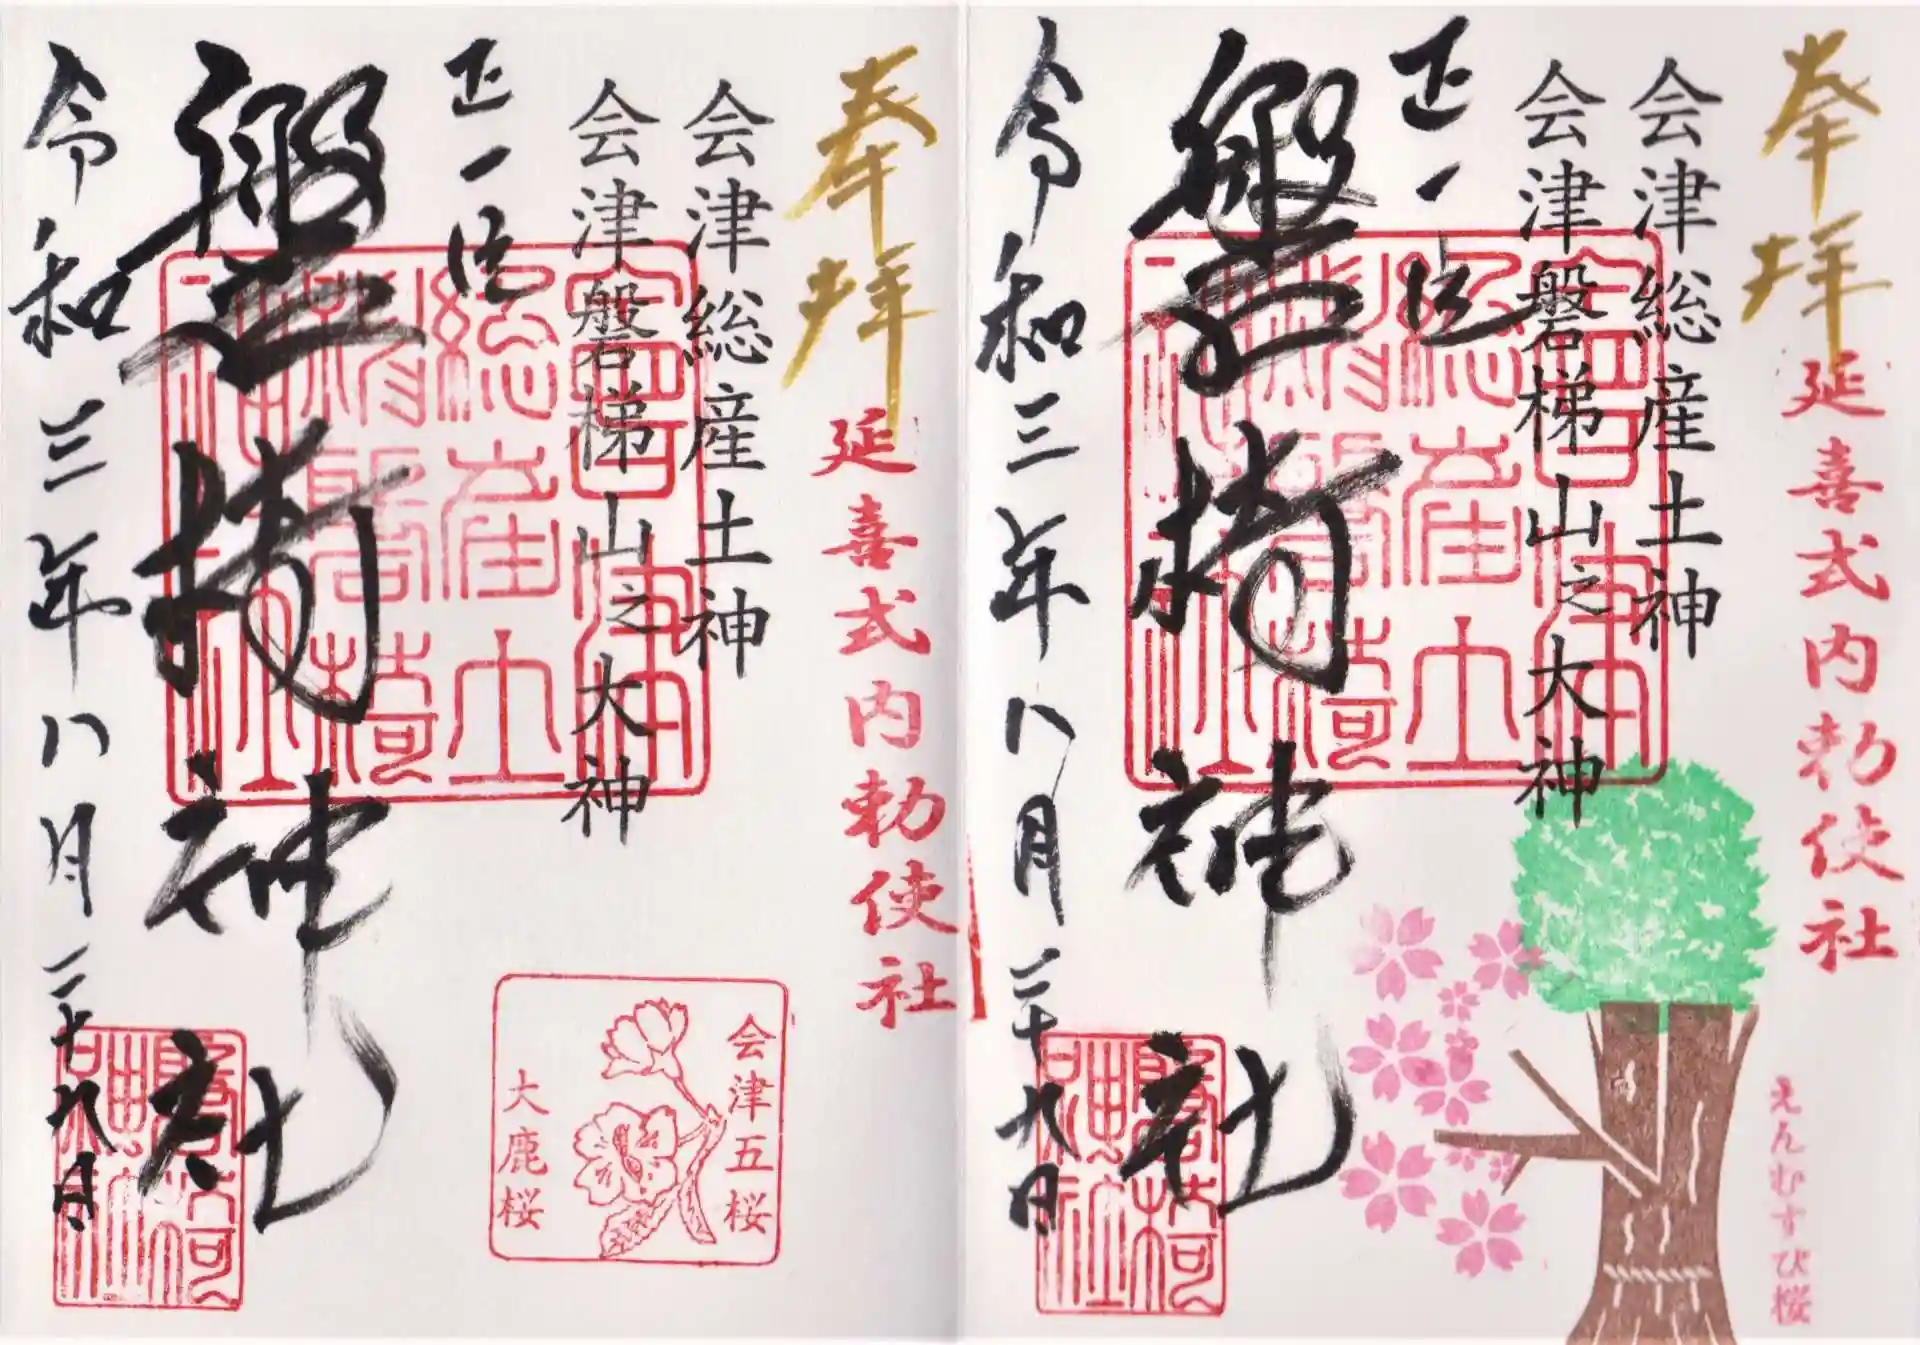 奉拝
延喜式内勅使社
会津総産土神
会津磐梯山之大神
正一位
磐椅神社
令和三年八月二十九日
えんむすび桜
磐椅
神社
奉拝
延喜式内勅使社
会津総産土神
会津磐梯山之大神
正一位
磐椅神社
令和三年八月二十九日
会津五桜
大鹿桜
磐椅
神社